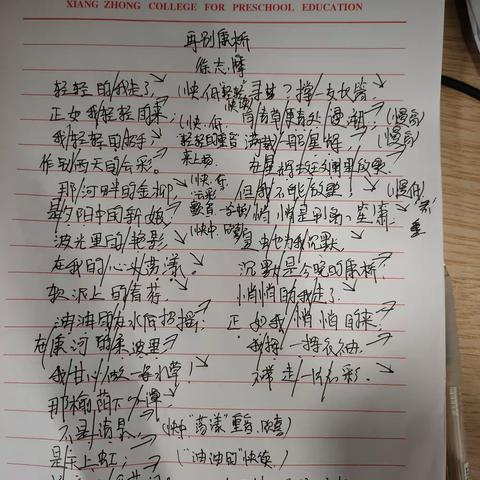 XIANG ZHONG COLLEGE FOR PRESCHOOL EDUCATION
再别康桥
徐志摩
轻轻的我走了
正如我轻轻的来
我轻轻的招手
作别西天的云彩。
那河畔的金柳
是夕阳中的新娘
波光里的艳影
在我的心头荡漾。
软泥上的青荇
油油的在水底招摇；
在康河的柔波里
我甘心做一条水草！
那榆荫下的一潭
不是清泉 (快中"荡漾"重音
是天上虹； ("油油的"快读)
寻梦？撑一支长篙
向青草更青处漫溯； (慢高)
满载一船星辉 (慢高)
在星辉斑斓里放歌。
但我不能放歌
悄悄是别离的笙箫
夏虫也为我沉默
沉默是今晚的康桥！
悄悄的我走了
正如我悄悄的来
我挥一挥衣袖
不带走一片云彩。